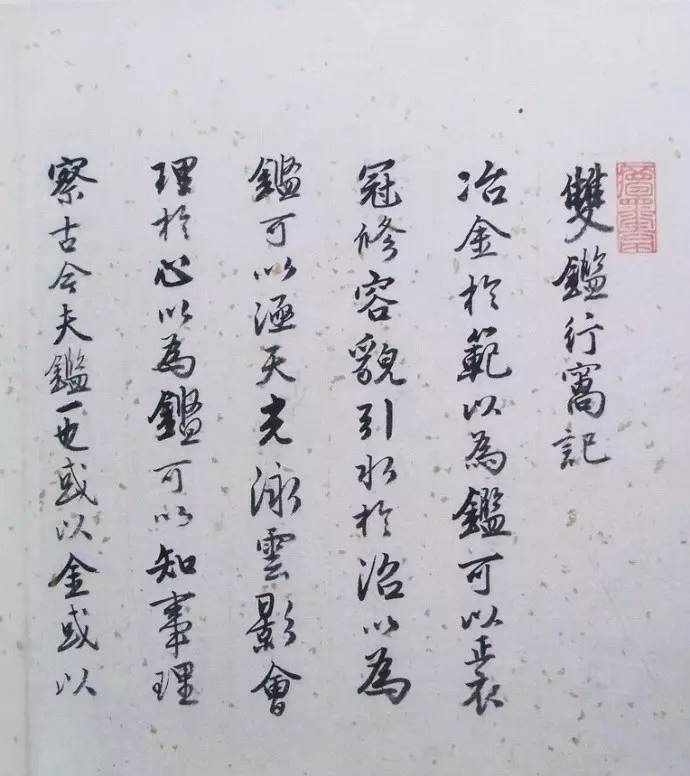 雙鑑行窩記
冶金於範以為鑑可以正衣
冠修容貌引水於沼以為
鑑可以涵天光泳雲影會
理於心以為鑑可以知事理
察古今夫鑑一也或以金或以